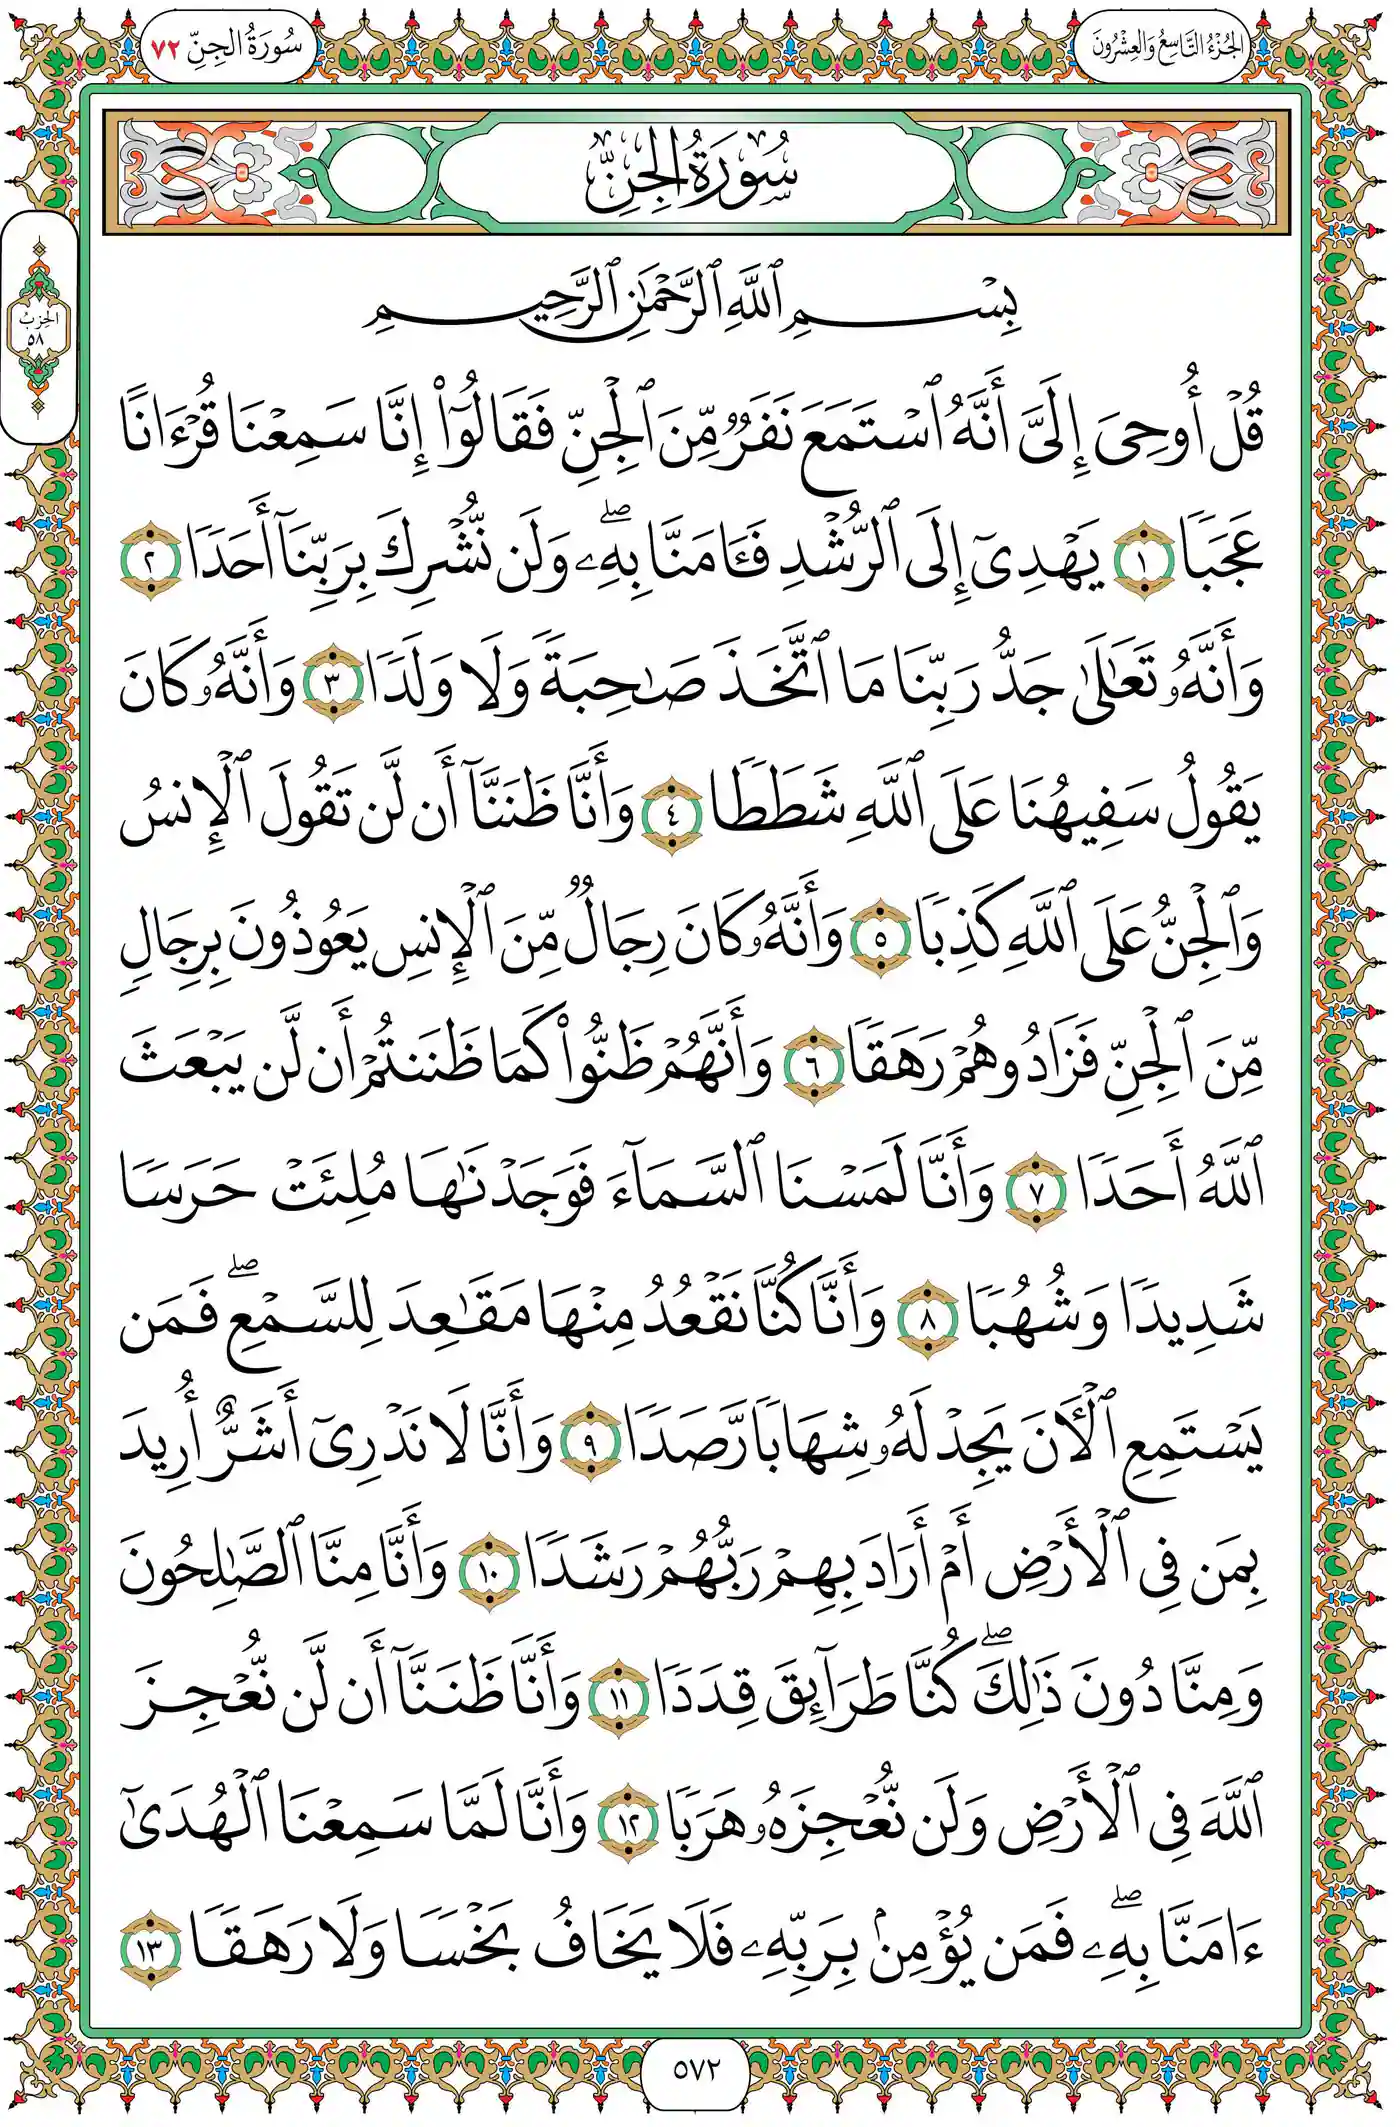 الجُزْءُ التَّاسِعُ وَالعِشْرُونَ
سُورَةُ الجِنِّ ٧٢
سُورَةُ الجِنِّ
الحِزْبُ
٥٨
بِسْمِ ٱللَّهِ ٱلرَّحْمَٰنِ ٱلرَّحِيمِ
قُلْ أُوحِىَ إِلَىَّ أَنَّهُ ٱسْتَمَعَ نَفَرٌ مِّنَ ٱلْجِنِّ فَقَالُوٓا۟ إِنَّا سَمِعْنَا قُرْءَانًا
عَجَبًا ١ يَهْدِىٓ إِلَى ٱلرُّشْدِ فَـَٔامَنَّا بِهِۦ ۖ وَلَن نُّشْرِكَ بِرَبِّنَآ أَحَدًا ٢
وَأَنَّهُۥ تَعَٰلَىٰ جَدُّ رَبِّنَا مَا ٱتَّخَذَ صَٰحِبَةً وَلَا وَلَدًا ٣ وَأَنَّهُۥ كَانَ
يَقُولُ سَفِيهُنَا عَلَى ٱللَّهِ شَطَطًا ٤ وَأَنَّا ظَنَنَّآ أَن لَّن تَقُولَ ٱلْإِنسُ
وَٱلْجِنُّ عَلَى ٱللَّهِ كَذِبًا ٥ وَأَنَّهُۥ كَانَ رِجَالٌ مِّنَ ٱلْإِنسِ يَعُوذُونَ بِرِجَالٍ
مِّنَ ٱلْجِنِّ فَزَادُوهُمْ رَهَقًا ٦ وَأَنَّهُمْ ظَنُّوا۟ كَمَا ظَنَنتُمْ أَن لَّن يَبْعَثَ
ٱللَّهُ أَحَدًا ٧ وَأَنَّا لَمَسْنَا ٱلسَّمَآءَ فَوَجَدْنَٰهَا مُلِئَتْ حَرَسًا
شَدِيدًا وَشُهُبًا ٨ وَأَنَّا كُنَّا نَقْعُدُ مِنْهَا مَقَٰعِدَ لِلسَّمْعِ ۖ فَمَن
يَسْتَمِعِ ٱلْـَٔانَ يَجِدْ لَهُۥ شِهَابًا رَّصَدًا ٩ وَأَنَّا لَا نَدْرِىٓ أَشَرٌّ أُرِيدَ
بِمَن فِى ٱلْأَرْضِ أَمْ أَرَادَ بِهِمْ رَبُّهُمْ رَشَدًا ١٠ وَأَنَّا مِنَّا ٱلصَّٰلِحُونَ
وَمِنَّا دُونَ ذَٰلِكَ ۖ كُنَّا طَرَآئِقَ قِدَدًا ١١ وَأَنَّا ظَنَنَّآ أَن لَّن نُّعْجِزَ
ٱللَّهَ فِى ٱلْأَرْضِ وَلَن نُّعْجِزَهُۥ هَرَبًا ١٢ وَأَنَّا لَمَّا سَمِعْنَا ٱلْهُدَىٰٓ
ءَامَنَّا بِهِۦ ۖ فَمَن يُؤْمِنۢ بِرَبِّهِۦ فَلَا يَخَافُ بَخْسًا وَلَا رَهَقًا ١٣
٥٧٢